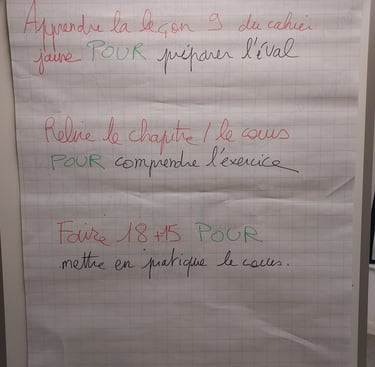 Apprendre la leçon 9 du cahier
jaune POUR préparer l'éval
Relire le chapitre / le cours
POUR comprendre l'exercice
Faire 18+15 POUR
mettre en pratique le cours.